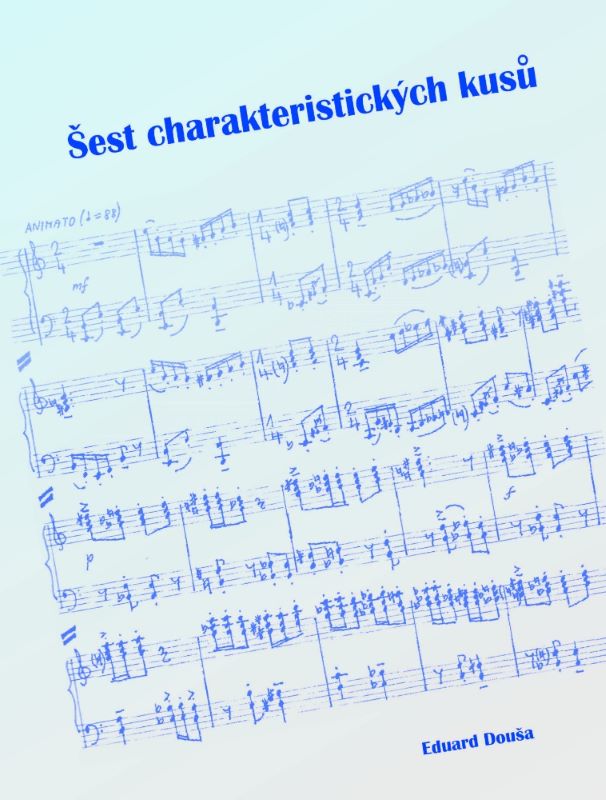 Šest charakteristických kusů
ANIMATO (♩=88)
2 4
1 4
2 4
mf
2 4
1 4
2 4
1 4
2 4
1 4
2 4
p
f
Eduard Douša